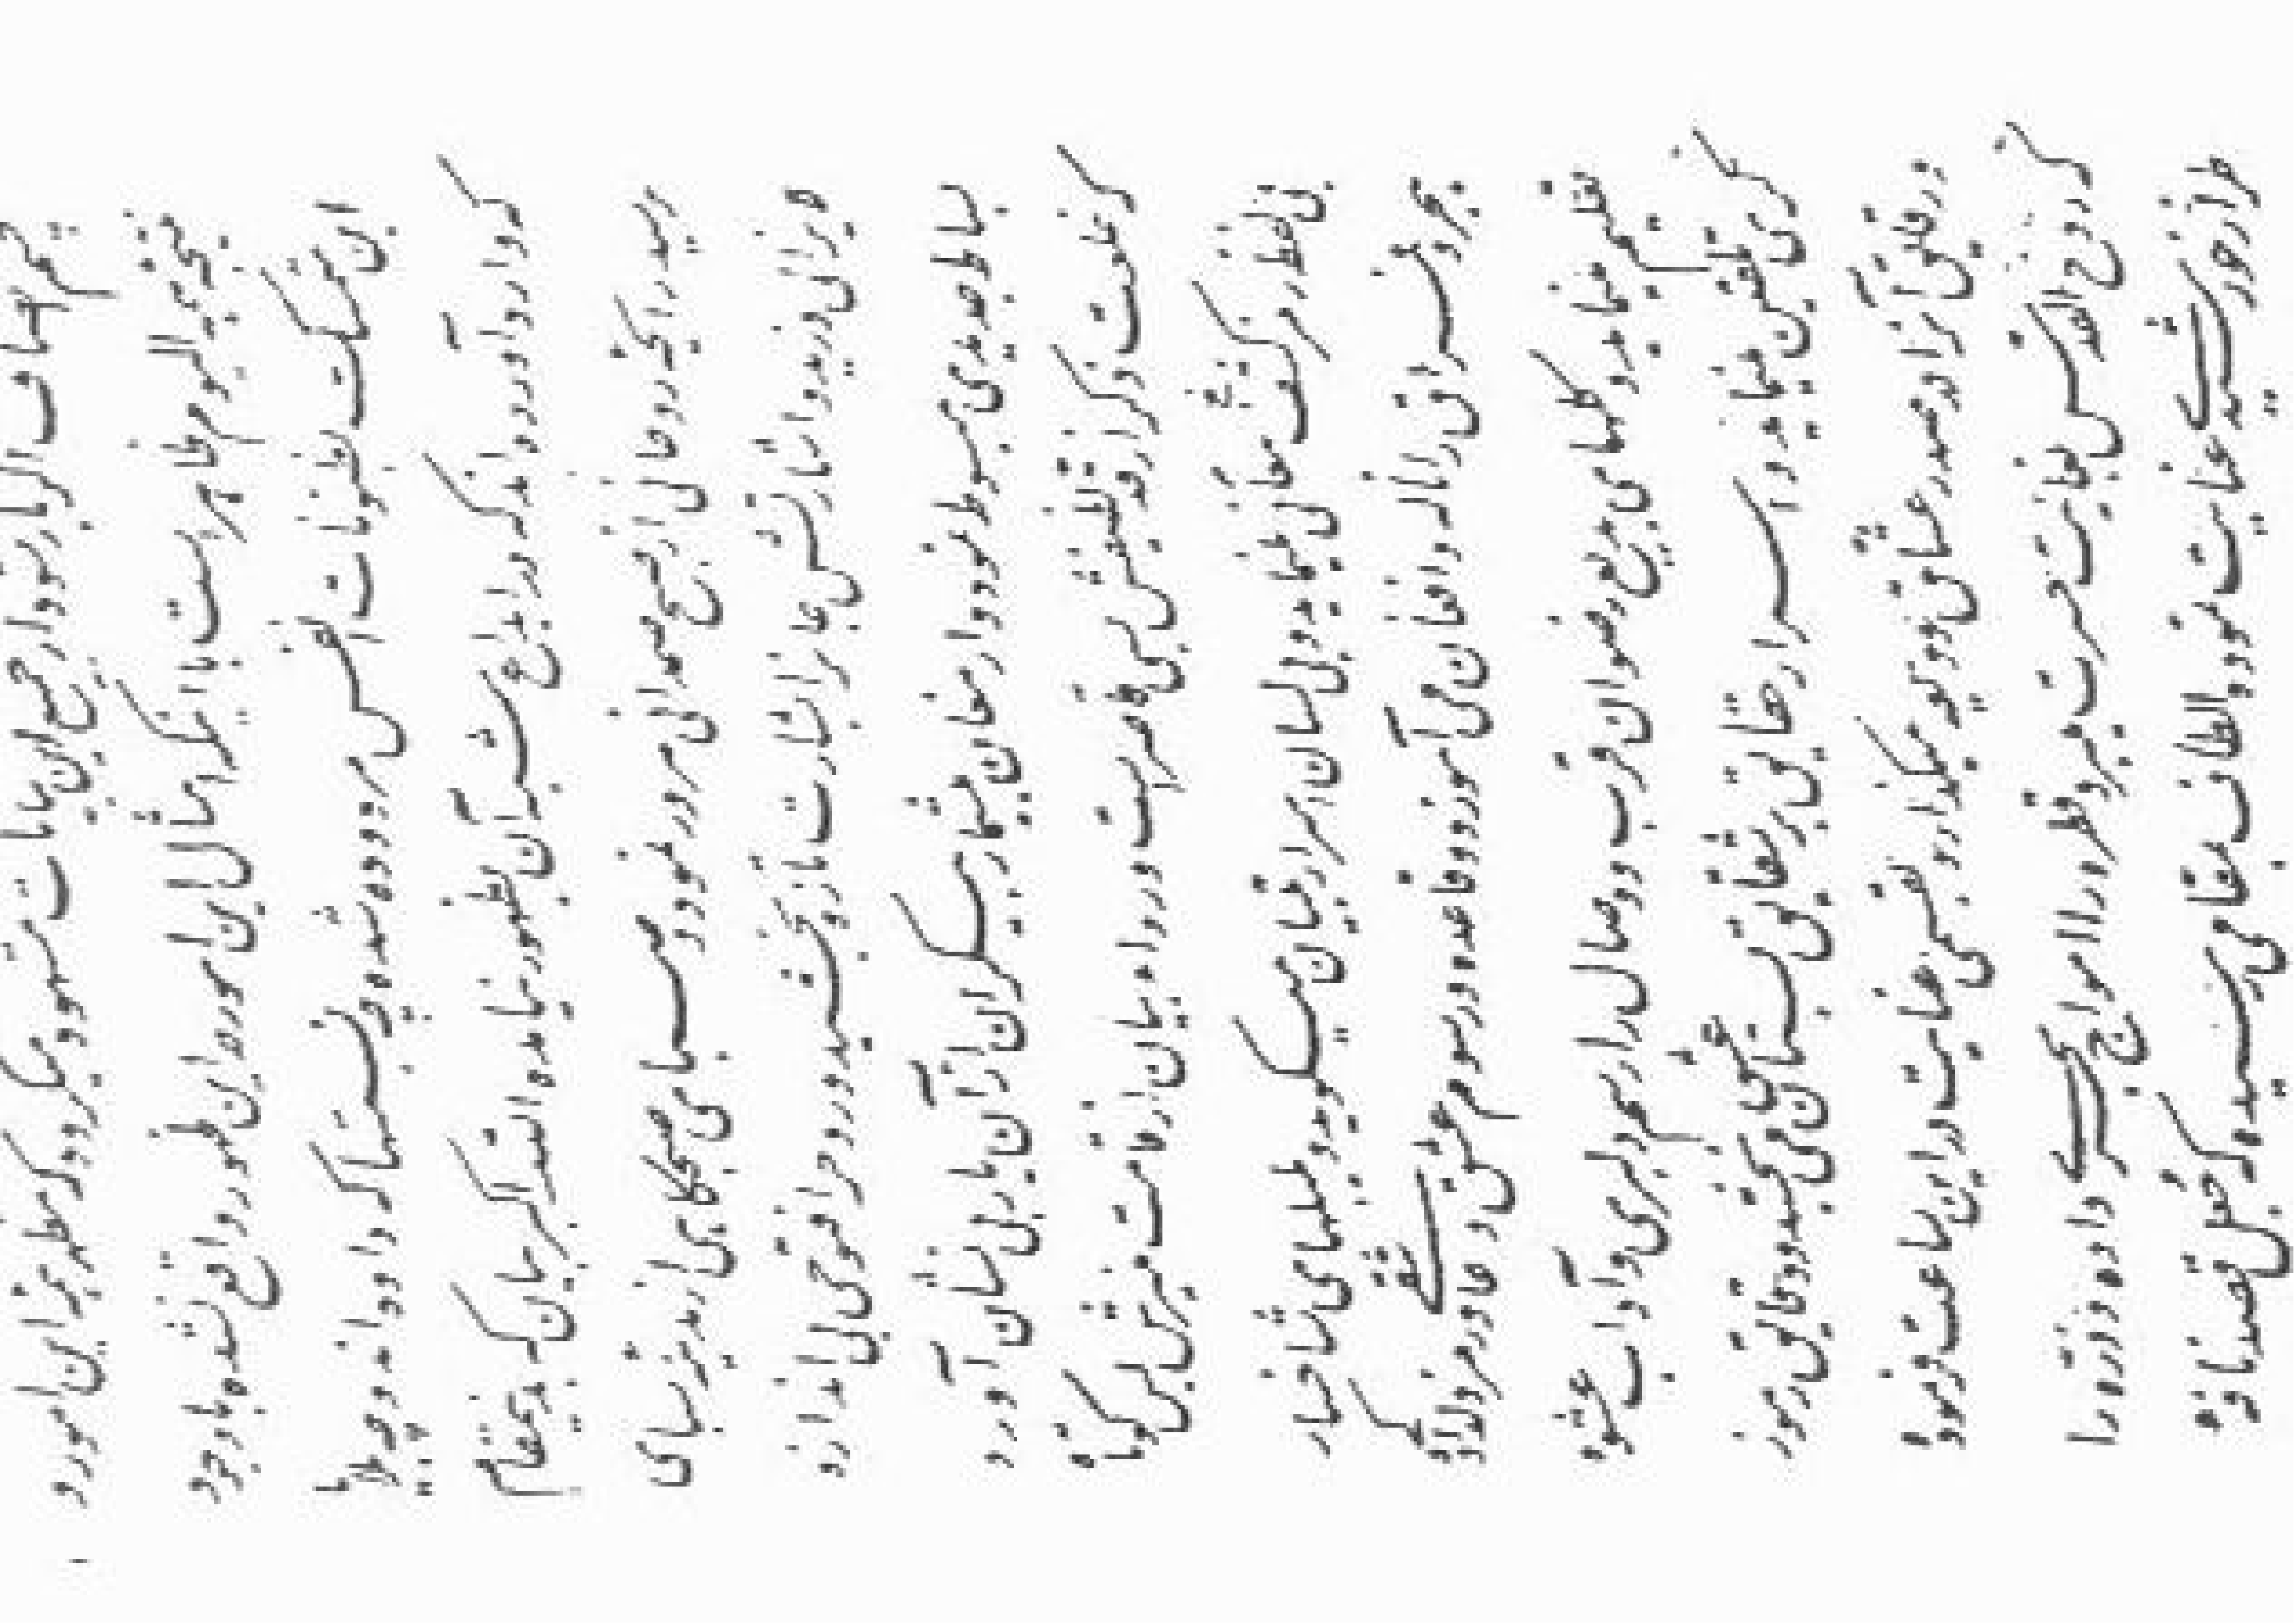 چشم انصاف اگر باز شود از جمیع این بیانات مشهود میگردد که مظهر همه این امور و
نتیجه الیوم ظاهر است با اینکه امثال این امور در این ظهور واقع نشده با وجود
این متمسک بظنونات انفس مردوده شده چه نسبتها که دادند و چه بلایا
که وارد آوردند که در ابداع شبه آن ظهور نیامده الله اکبر بیان که بدینمقام
رسید رائحه روحانی از صبح صمدانی مرور نمود و صبا صبحگاهی از مدینه سبای
لایزالی وزید و اشارتش جانرا بشارت تازه بخشید و روح را فتوحی بی اندازه
بساط جدیدی مبسوط نمود و ارمغان بیشمار بیکران از آن یار بی نشان آورد
که خلعت ذکر از قد لطیفش بسی قاصر است و رداء بیان از قامت منیرش بس کوتاه
بی لفظ رمز معانی کشف مینماید و بی لسان اسرار تبیان میگوید و بلبلهای شاخسار
هجر و فراق را ناله و افغان می آموزد و قاعده و رسوم عشق و عاشقی و رمز دلدادگی
تعلیم مینماید و گلهای بدیع رضوان قرب و وصال را رسم دلبری و آداب عشوه
گری تلقین مینماید و اسرار حقایق بر شقایق بستان عشق می بخشد و دقایق رموز
و رقایق آنرا در صدر عشاق ودیعه میگذارد بقسمی عنایت در این ساعت فرموده
که روح القدس بغایت حسرت میبرد قطره را امواج بحری داده و ذره را
طراز خورشیدی عنایت نموده الطاف بمقامی رسیده که جعل قصد نافه